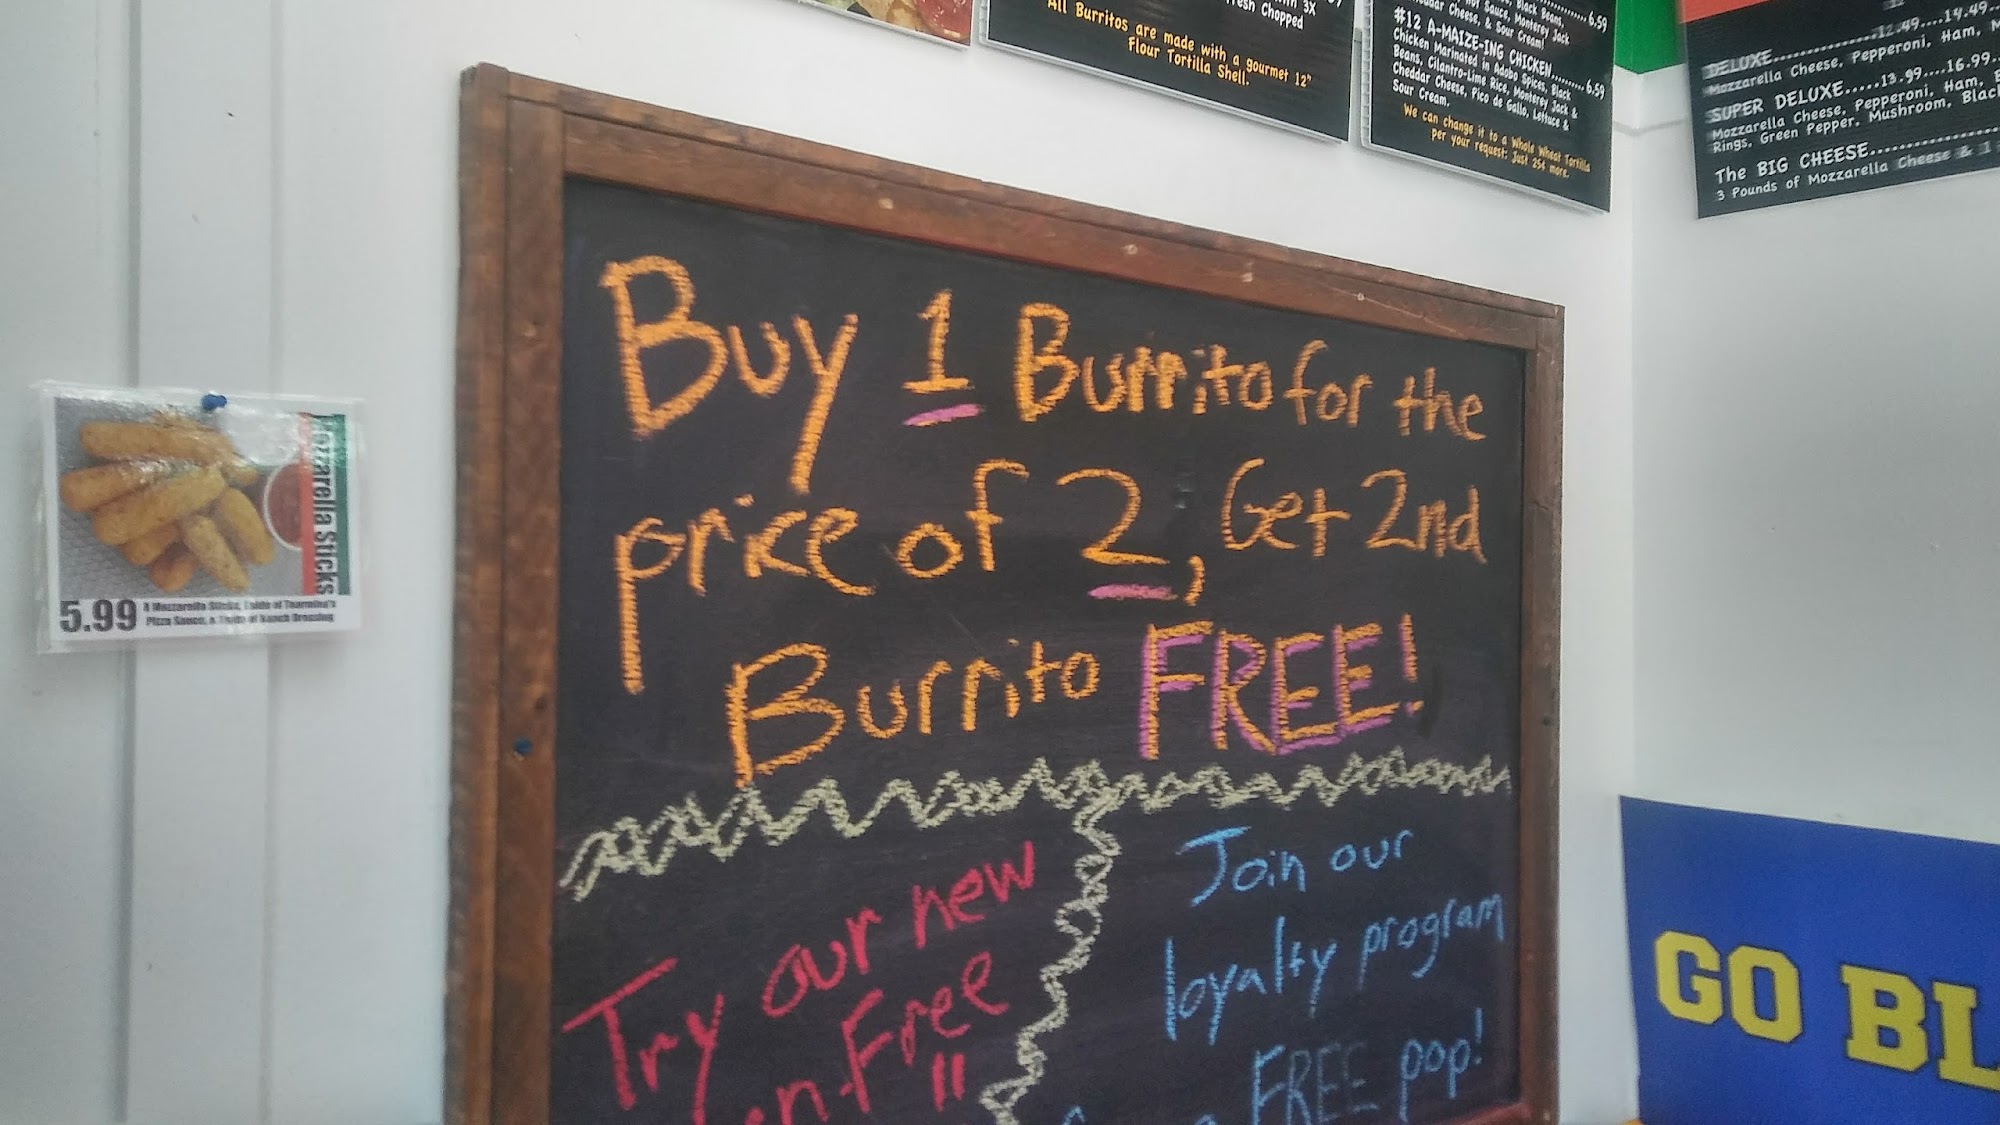 with 3X
Fresh Chopped
All Burritos are made with a gourmet 12"
Flour Tortilla Shell.
Black Beans,
Sauce, Monterey Jack
Cheddar Cheese, & Sour Cream! 6.59
#12 A-MAIZE-ING CHICKEN......... 6.59
Chicken Marinated in Adobo Spices, Black
Beans, Cilantro-Lime Rice, Monterey Jack &
Cheddar Cheese, Pico de Gallo, Lettuce &
Sour Cream.
We can change it to a Whole Wheat Tortilla
per your request: Just 25¢ more.
DELUXE..................12.49....14.49
Mozzarella Cheese, Pepperoni, Ham,
SUPER DELUXE.....13.99....16.99
Mozzarella Cheese, Pepperoni, Ham,
Rings, Green Pepper, Mushroom, Black
The BIG CHEESE
3 Pounds of Mozzarella Cheese & 1
Buy 1 Burrito for the
price of 2, Get 2nd
Burrito FREE!
Try our new
Free
Join our
loyalty program
FREE pop!
Mozzarella Sticks
5.99
8 Mozzarella Sticks, 1 side of Taormina's
Pizza Sauce, & 1 side of Ranch Dressing
GO BL